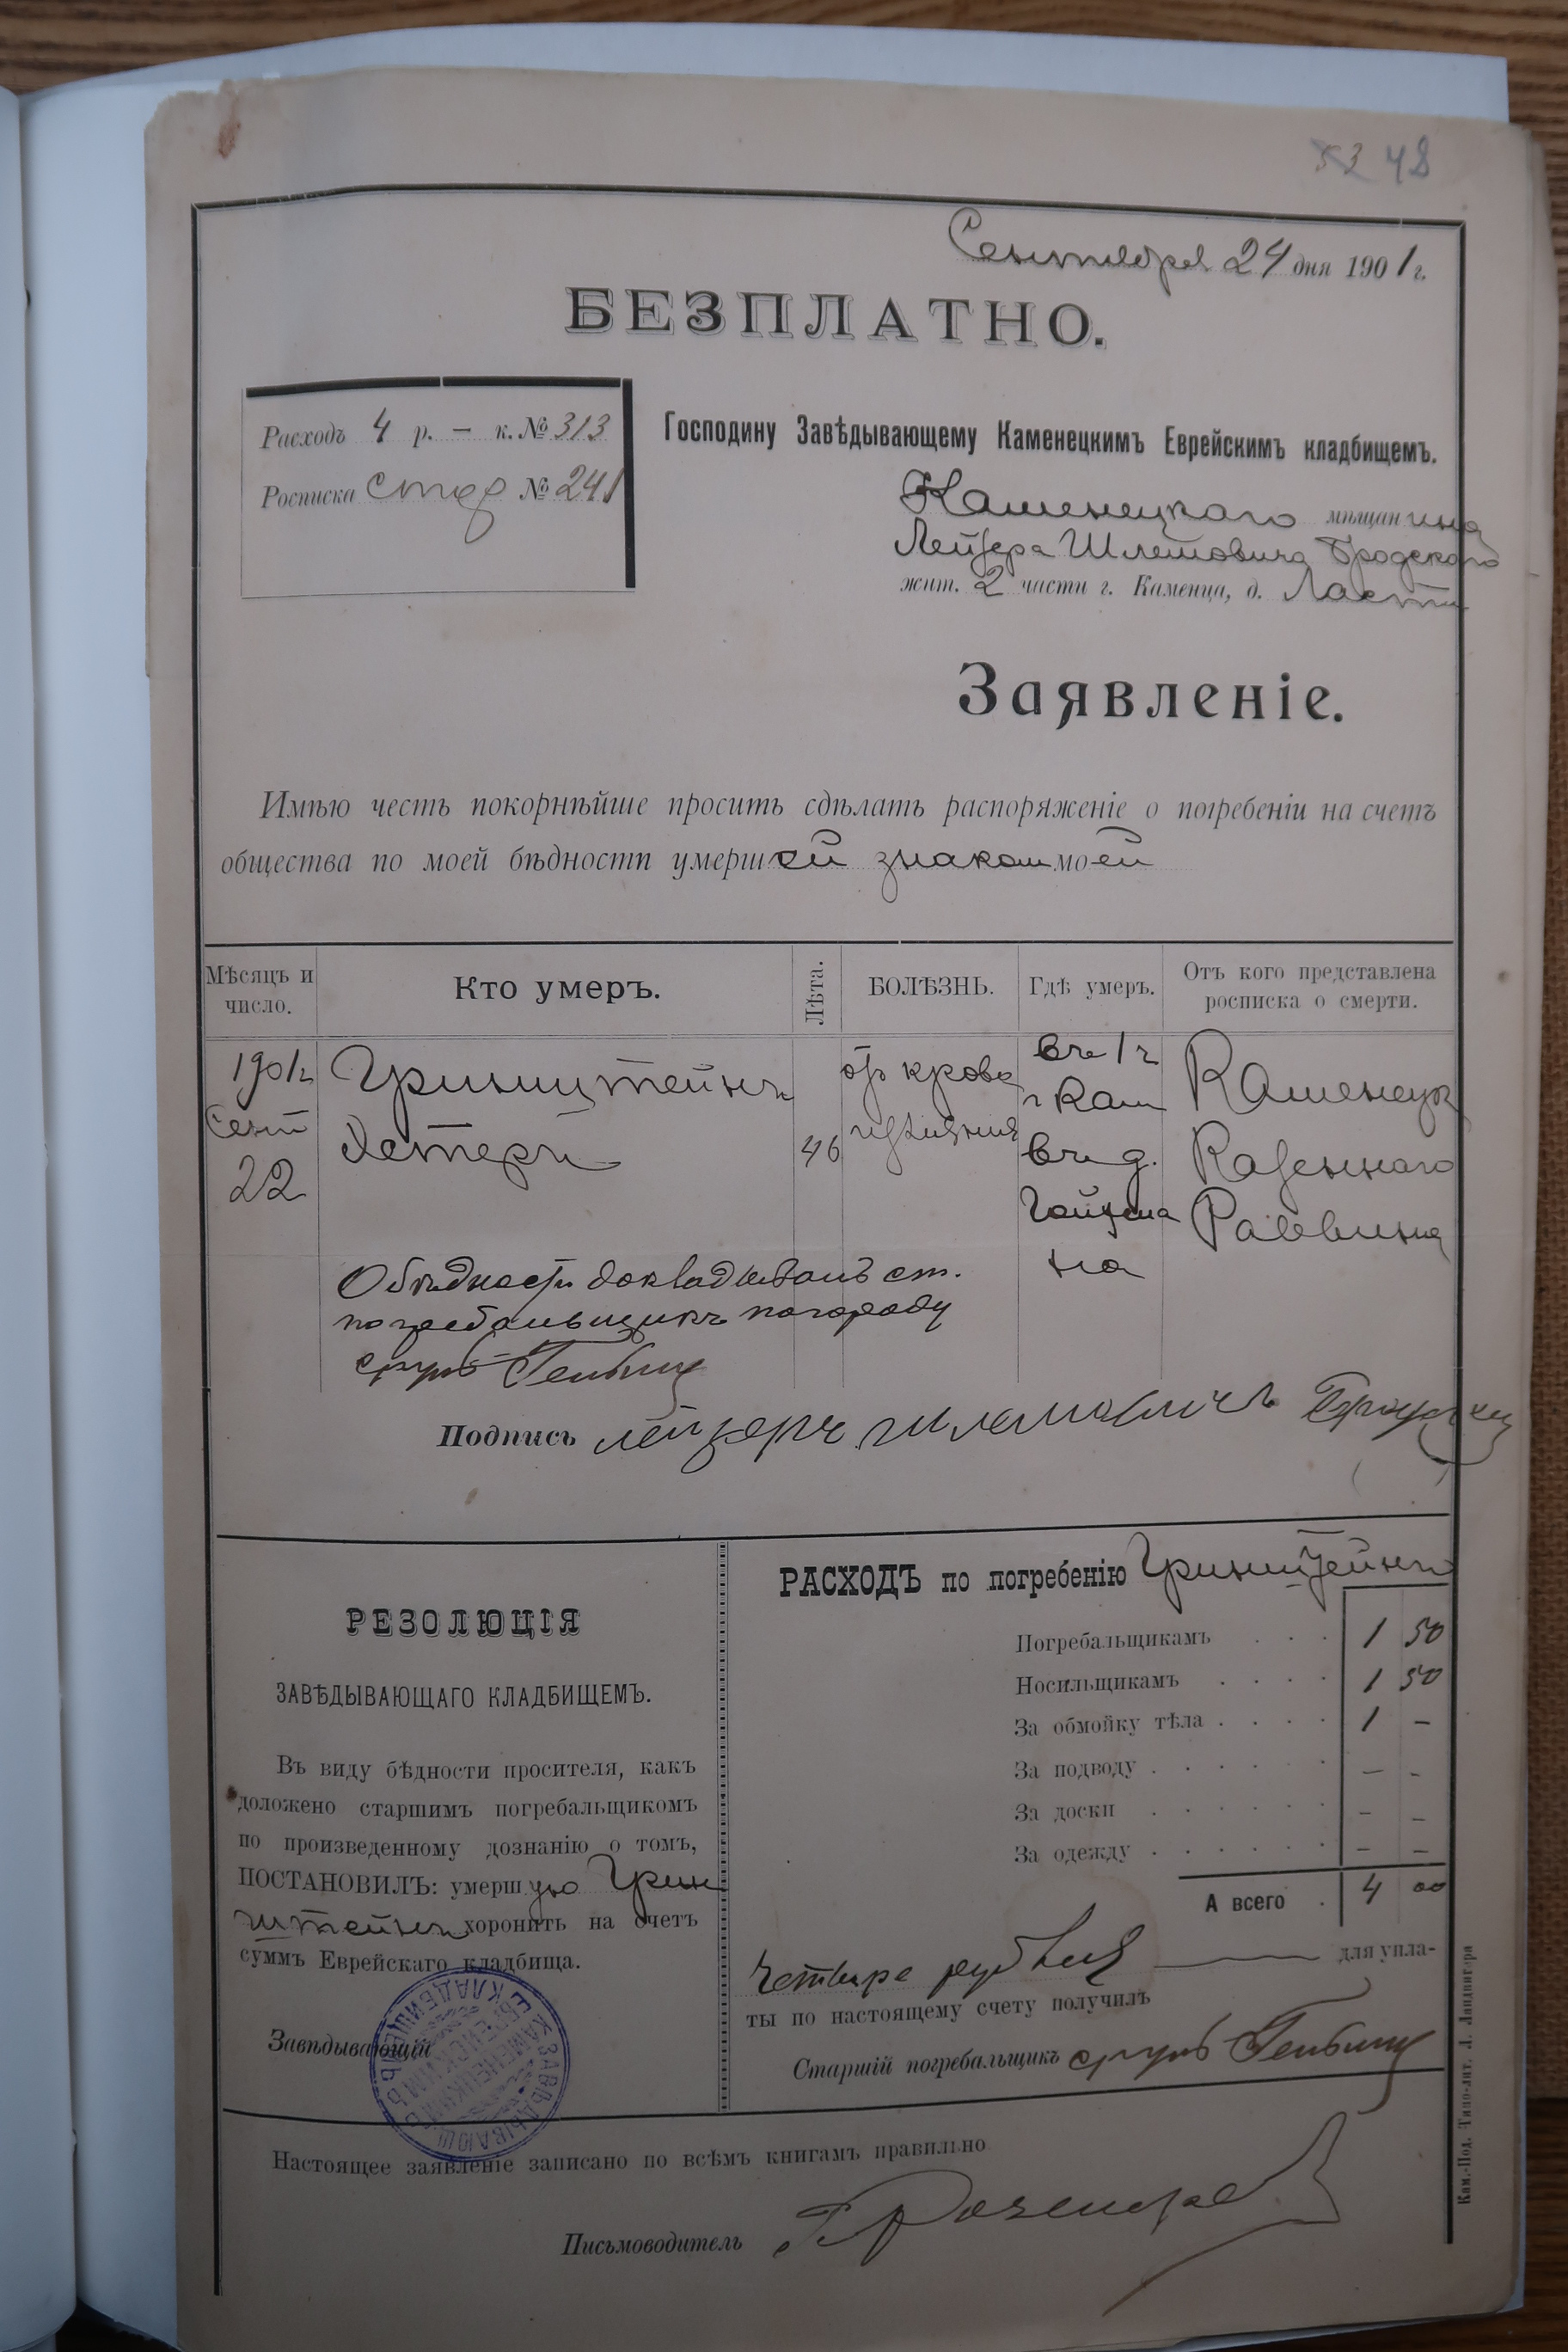 53 48
Сентября 24 дня 1901 г.
БЕЗПЛАТНО.
Расходъ 4 р. — к. № 313
Росписка № 241
Господину Завѣдывающему Каменецкимъ Еврейскимъ кладбищемъ.
Каменецкаго мѣщанина
Лейзера Шлемовича Бродскаго
жит. 2 части г. Каменца, д.
Заявленіе.
Имѣю честь покорнѣйше просить сдѣлать распоряженіе о погребеніи на счетъ
общества по моей бѣдности умершей знакоммоей
Мѣсяцъ и число.
Кто умеръ.
Лѣта.
БОЛѢЗНЬ.
Гдѣ умеръ.
Отъ кого представлена росписка о смерти.
1901г
Сент
22
Гринштейнъ
Эстеръ
46
от крово
изліянія
въ 1 ч
г Кам
въ д.
на
Каменецк
Казеннаго
Раввина
О бѣдности докладывалъ ст.
погребальщикъ по городу
Подпись лейзеръ шлемовичъ Бродский
РЕЗОЛЮЦІЯ
ЗАВѢДЫВАЮЩАГО КЛАДБИЩЕМЪ.
Въ виду бѣдности просителя, какъ
доложено старшимъ погребальщикомъ
по произведенному дознанію о томъ,
ПОСТАНОВИЛЪ: умершую Грин
штейнъ хоронить на счетъ
суммъ Еврейскаго кладбища.
Завѣдывающій
ЗАВѢДЫВАЮЩ КАМЕНЕЦКИМЪ ЕВРЕЙСКИМЪ КЛАДБИЩЕМЪ
РАСХОДЪ по погребенію Гринштейнъ
Погребальщикамъ . . . 1 50
Носильщикамъ . . . . 1 50
За обмойку тѣла . . . . 1 —
За подводу . . . . . . — -
За доски . . . . . . - -
За одежду . . . . . . - -
А всего . 4 00
Четыре рубля — для упла-
ты по настоящему счету получилъ
Старшій погребальщикъ
Настоящее заявленіе записано по всѣмъ книгамъ правильно
Письмоводитель
Кам.-Под. Типо-лит. Л. Ландвигера